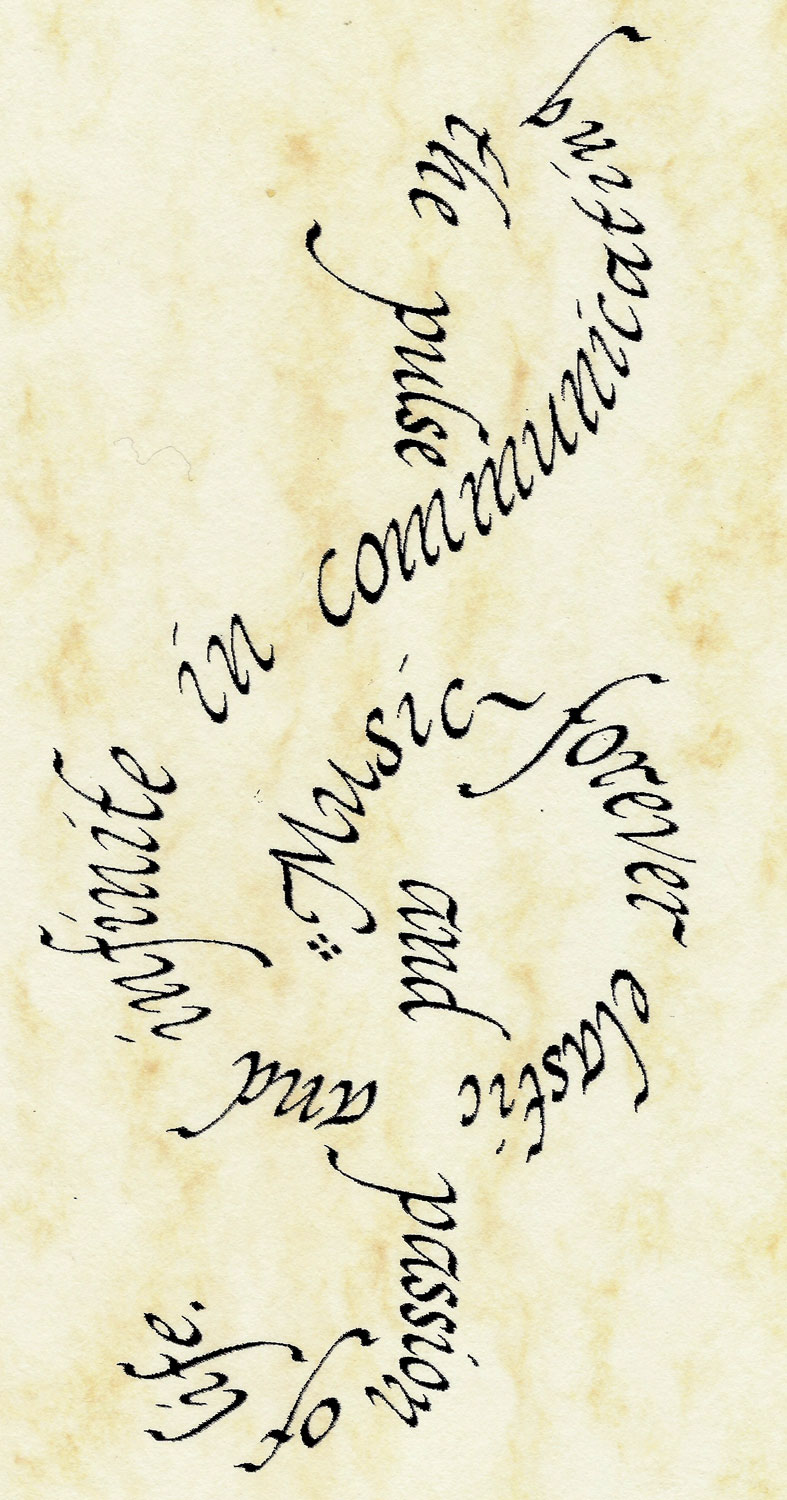 Music, forever elastic and infinite in communicating the pulse and passion of life.